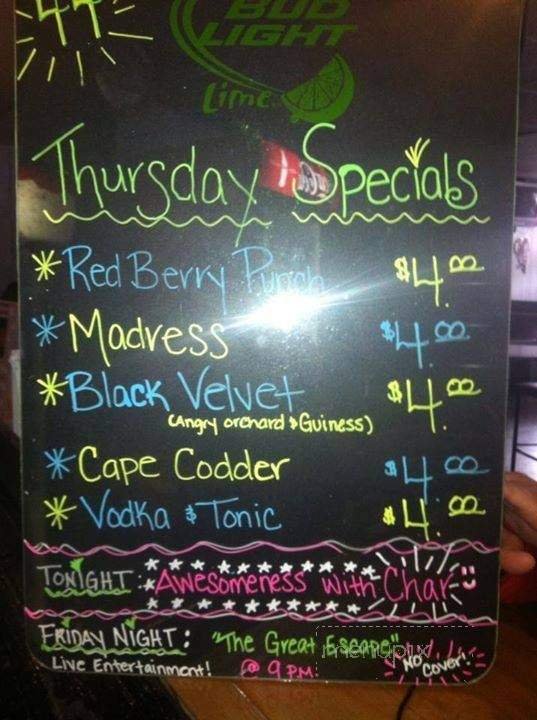 44
BUD
LIGHT
Lime
Thursday Specials
* Red Berry Punch $4.00
* Madress $4.00
* Black Velvet $4.00
(Angry orchard & Guiness)
* Cape Codder $4.00
* Vodka & Tonic $4.00
TONIGHT: Awesomeness with Char
FRIDAY NIGHT: "The Great Escape"
Live Entertainment! @ 9 PM! NO COVER!
menupix